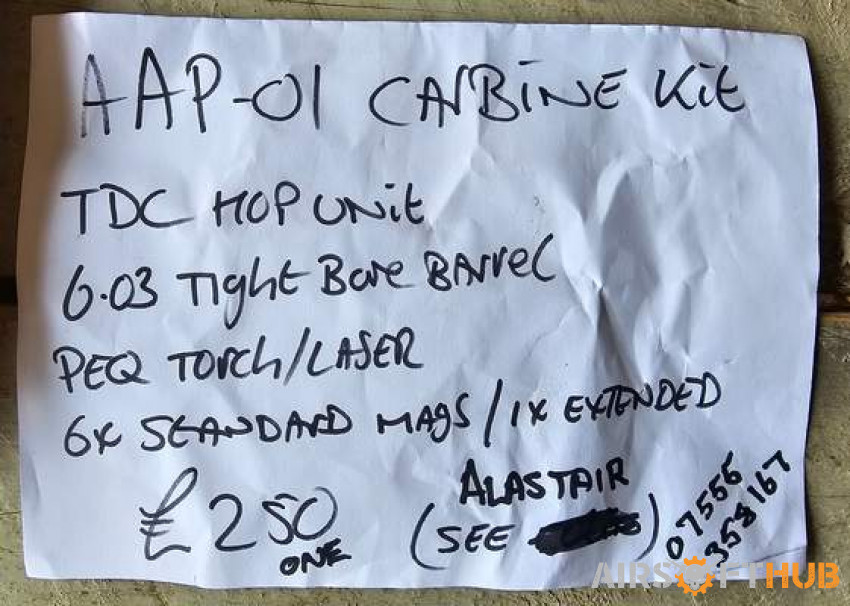 AAP-01 CARBINE Kit
TDC HOP UNit
6.03 Tight Bore BARREL
PEQ TORCH/LASER
6x STANDARD MAgS / 1x EXTENDED
£250
ONE
ALASTAIR
(SEE )
07566
358167
AIRSOFTHUB